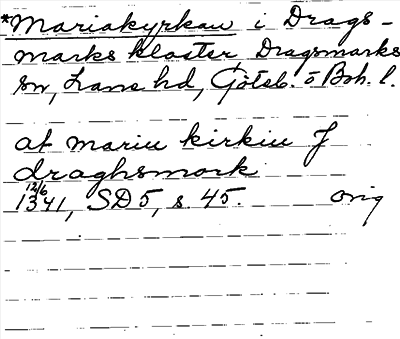 *Mariakyrkan i Drags-
marks kloster Dragsmarks
sn, Lane hd, Göteb. o Boh. l.
at mariu kirkiu J
draghsmork
12/6
1341, SD5, s. 45. orig